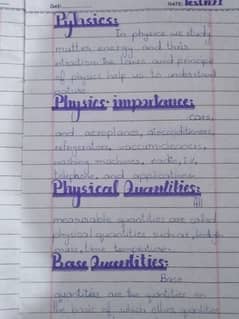 DATE:
Pyhsics:
In physics we study
matter, energy and their
intraction. The laws and principle
of physics help us to understand
nature.
Physics importance:
cars,
and aeroplanes, airconditioners,
refrigerators, vaccum-cleaners,
washing machines, radio, t.v,
telephole, and applications.
Physical Quantities:
All
measurable quantities are called
physical quantities such as, length,
mass, time temperature.
Base Quantities:
Base
quantities are the quantities on
the basis of, which other quantities